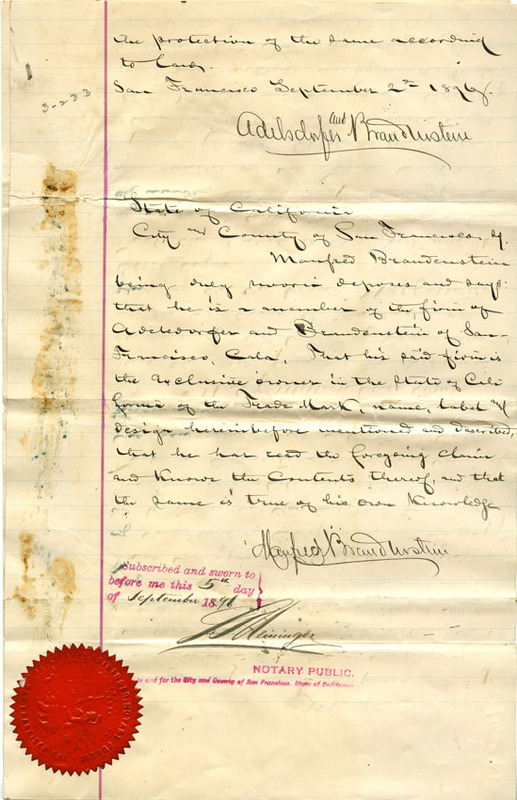 the protection of the same according
to law.
San Francisco September 2nd 1896.
3-233
Adelsdorfer and Brandenstein
State of California
City and County of San Francisco
Manfred Brandenstein
being duly sworn deposes and says:
that he is a member of the firm of
Adelsdorfer and Brandenstein of San
Francisco, Cala. That his said firm is
the exclusive owner in the State of Cali
fornia of the Trade Mark, name, label and
design hereinbefore mentioned and described,
that he has read the foregoing claim
and knows the contents thereof, and that
the same is true of his own knowledge
Manfred Brandenstein
Subscribed and sworn to
before me this 5th day
of September 1896
NOTARY PUBLIC.
in and for the City and County of San Francisco, State of California